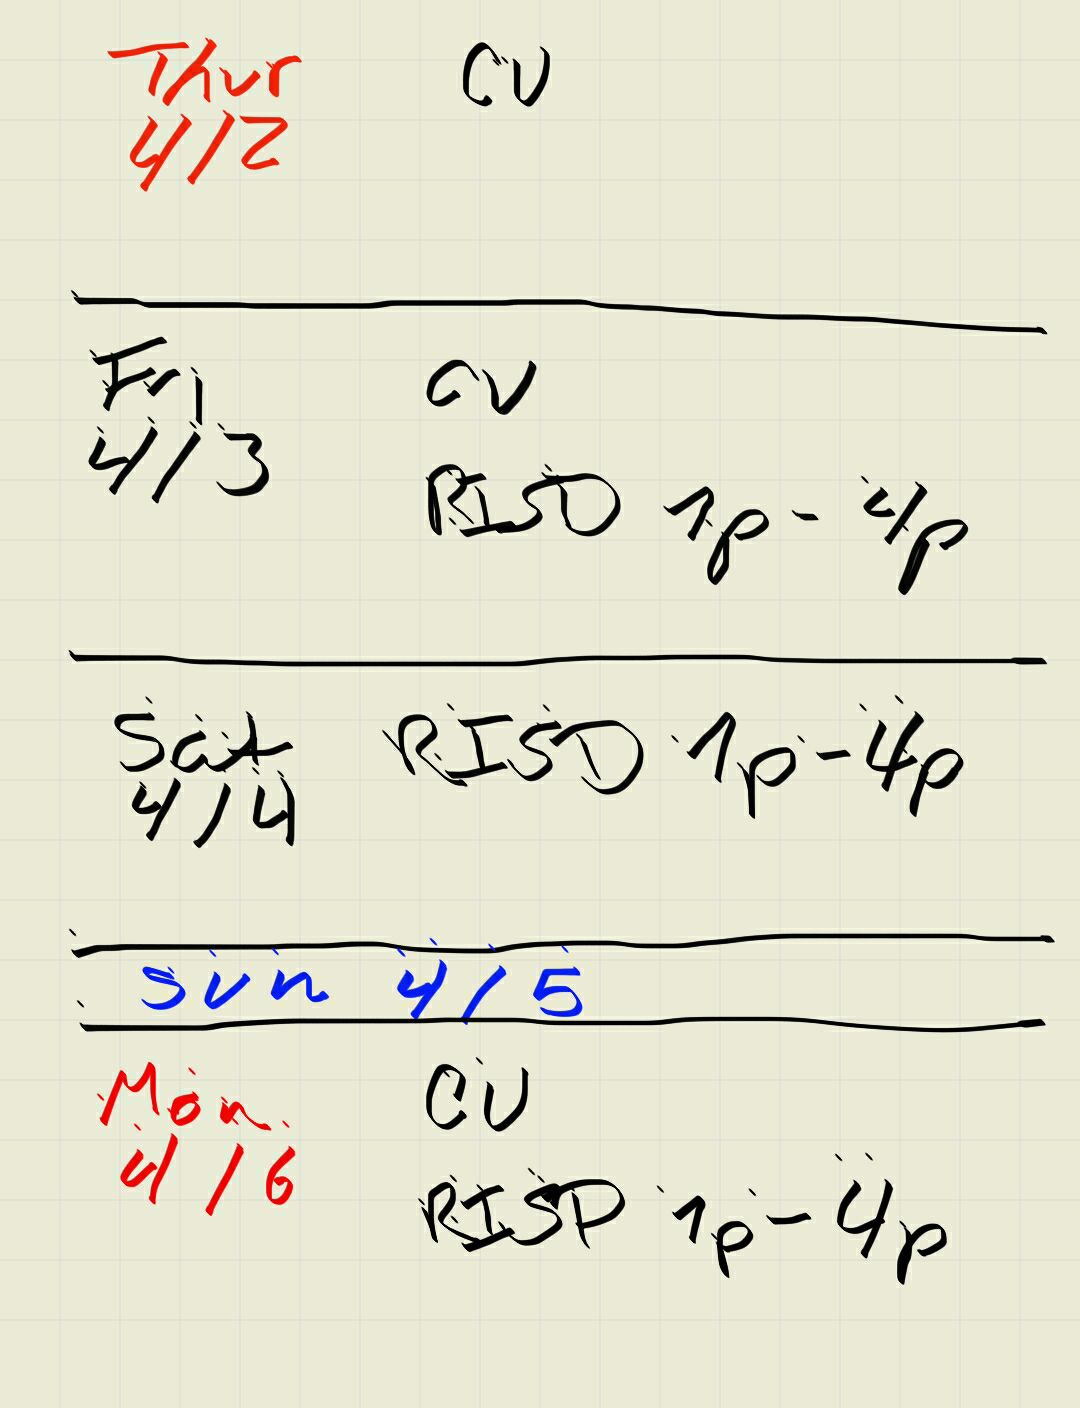 Thur CV
4/2
Fri CV
4/3
RISD 1p - 4p
Sat RISD 1p - 4p
4/4
Sun 4/5
Mon. CV
4/6
RISD 1p - 4p